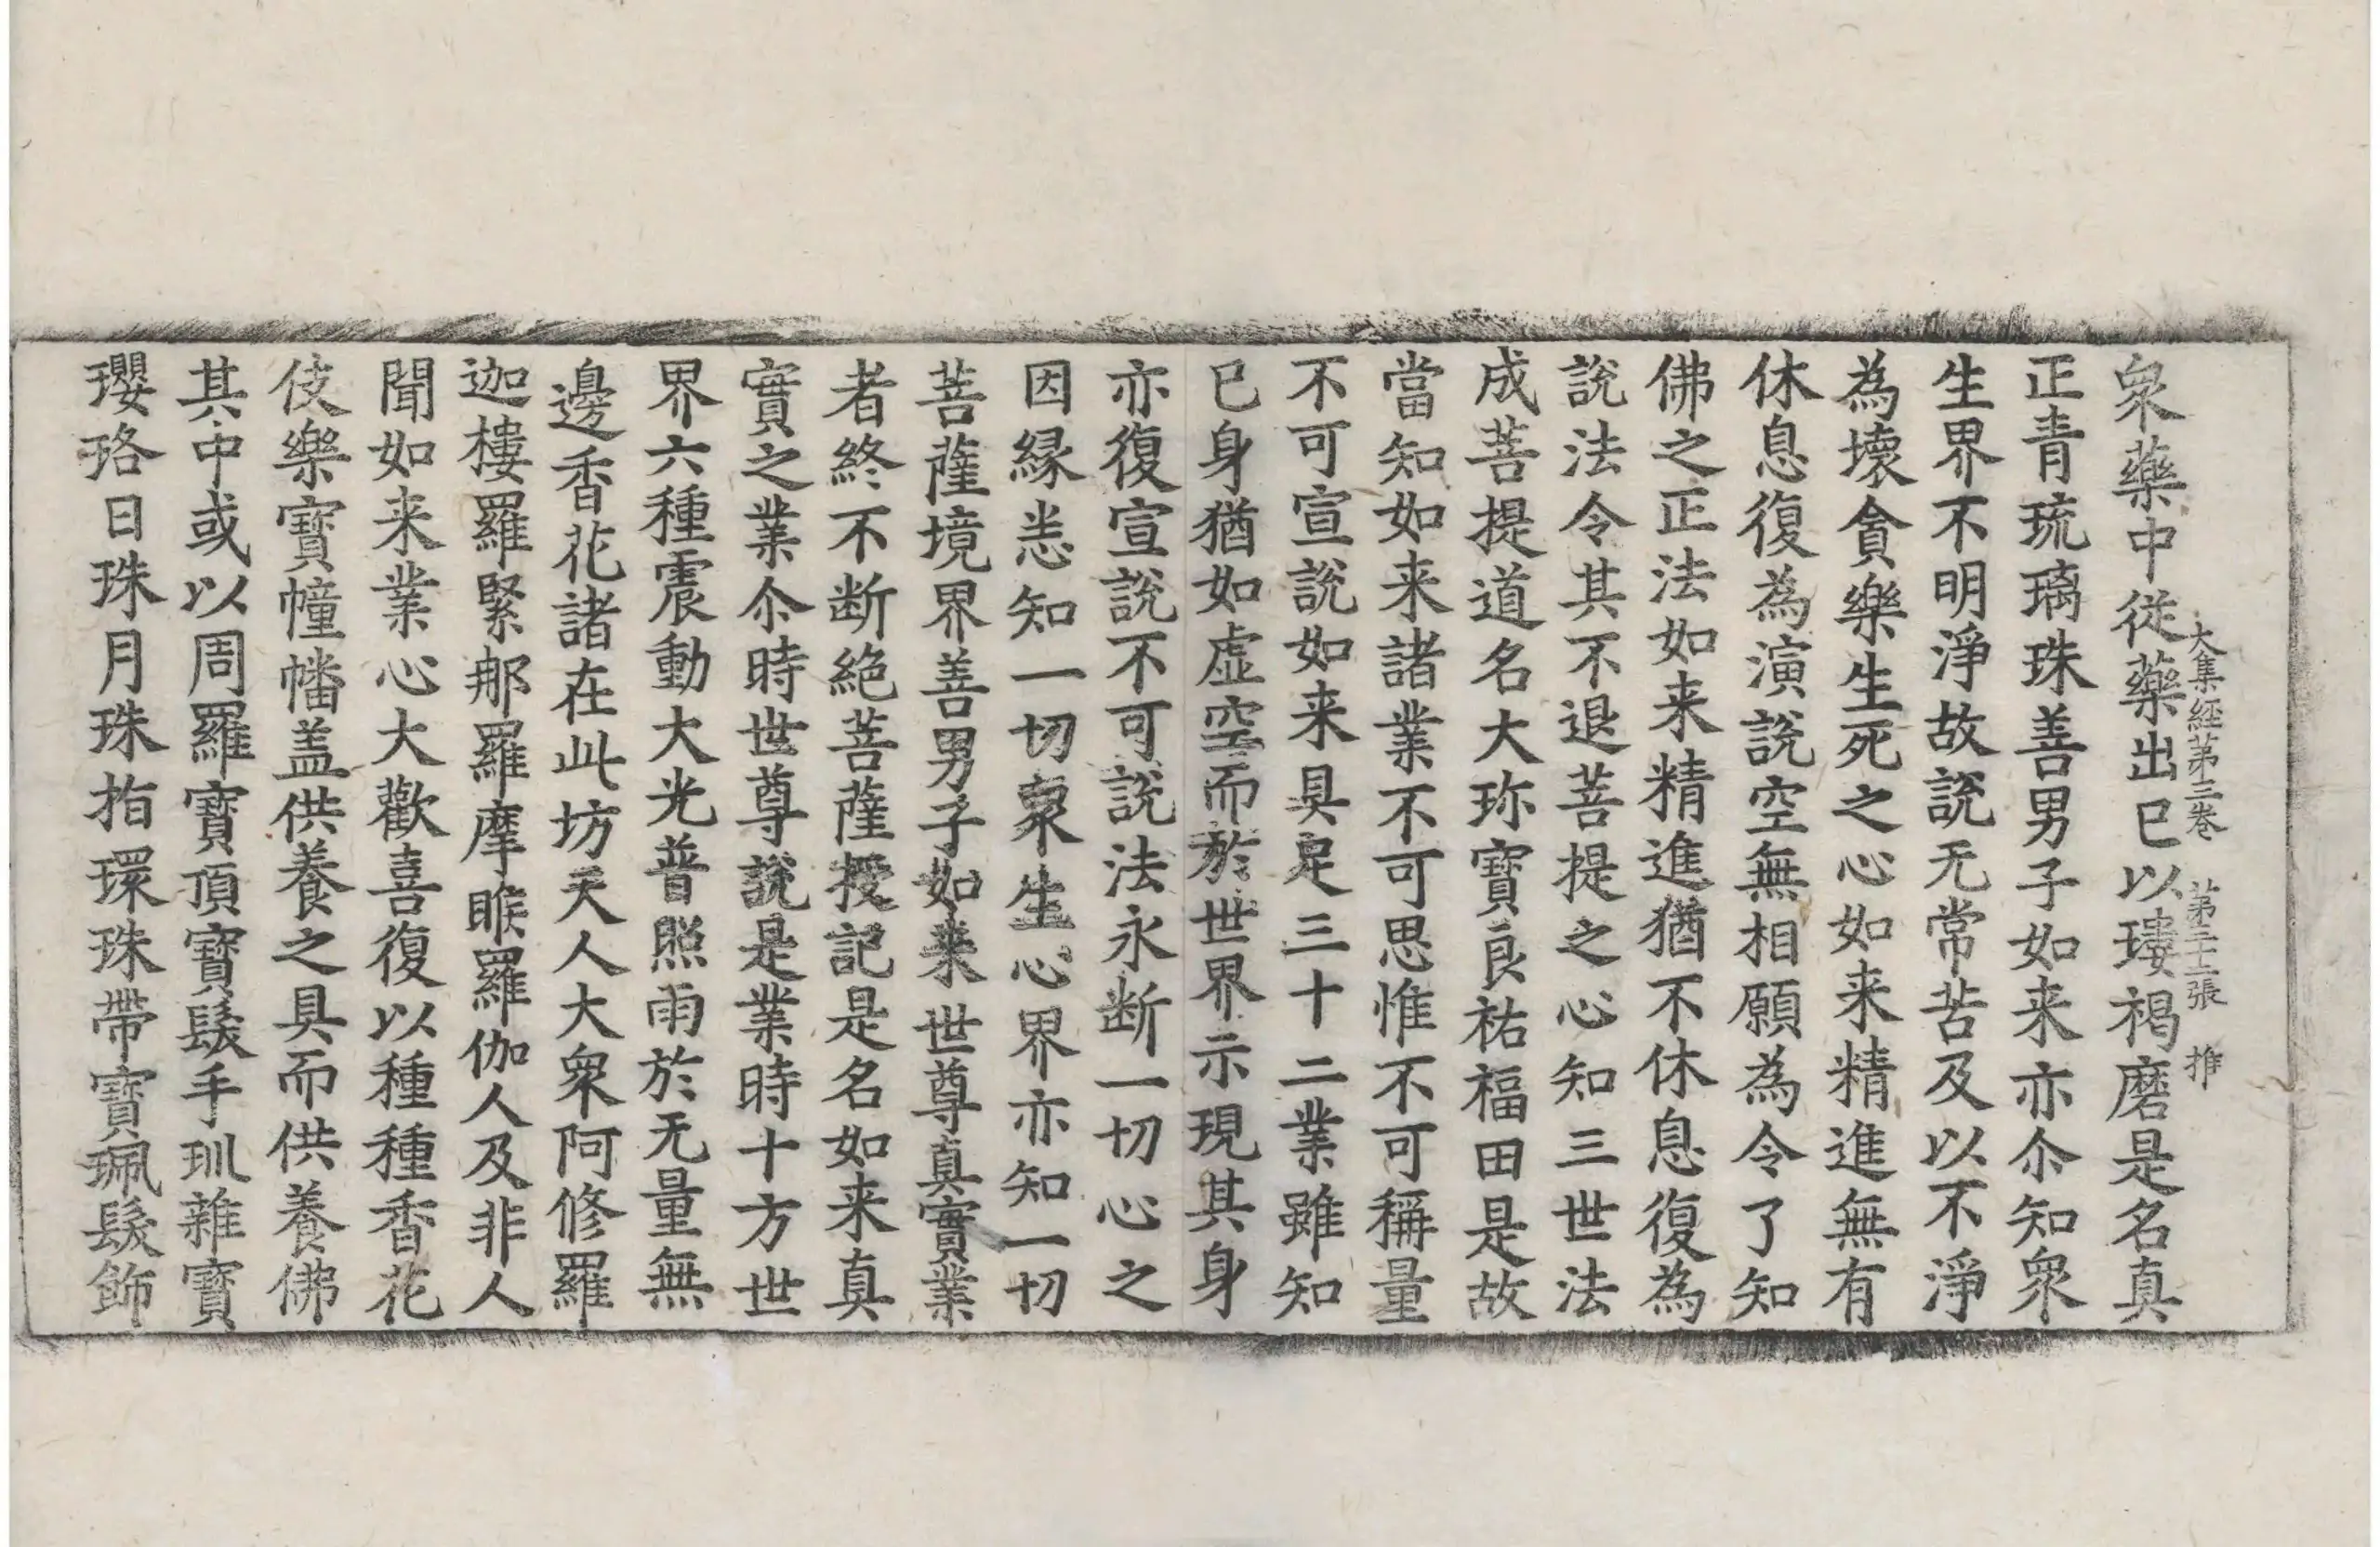 大集經第三卷 第二十二張 推
衆藥中從藥出已以瓔褐磨是名真
正青琉璃珠善男子如来亦尒知衆
生界不明淨故說无常苦及以不淨
為壞貪樂生死之心如来精進無有
休息復為演說空無相願為令了知
佛之正法如来精進猶不休息復為
說法令其不退菩提之心知三世法
成菩提道名大珎寶良祐福田是故
當知如来諸業不可思惟不可稱量
不可宣說如来具足三十二業雖知
已身猶如虛空而於世界示現其身
亦復宣說不可說法永断一切心之
因緣悉知一切衆生心界亦知一切
菩薩境界善男子如来世尊真實業
者終不断絕菩薩授記是名如来真
實之業尒時世尊說是業時十方世
界六種震動大光普照雨於无量無
邊香花諸在此坊天人大衆阿修羅
迦樓羅緊那羅摩睺羅伽人及非人
聞如来業心大歡喜復以種種香花
伎樂寶幢幡盖供養之具而供養佛
其中或以周羅寶頂寶鬘手玔雜寶
瓔珞日珠月珠指環珠帶寶珮鬘飾